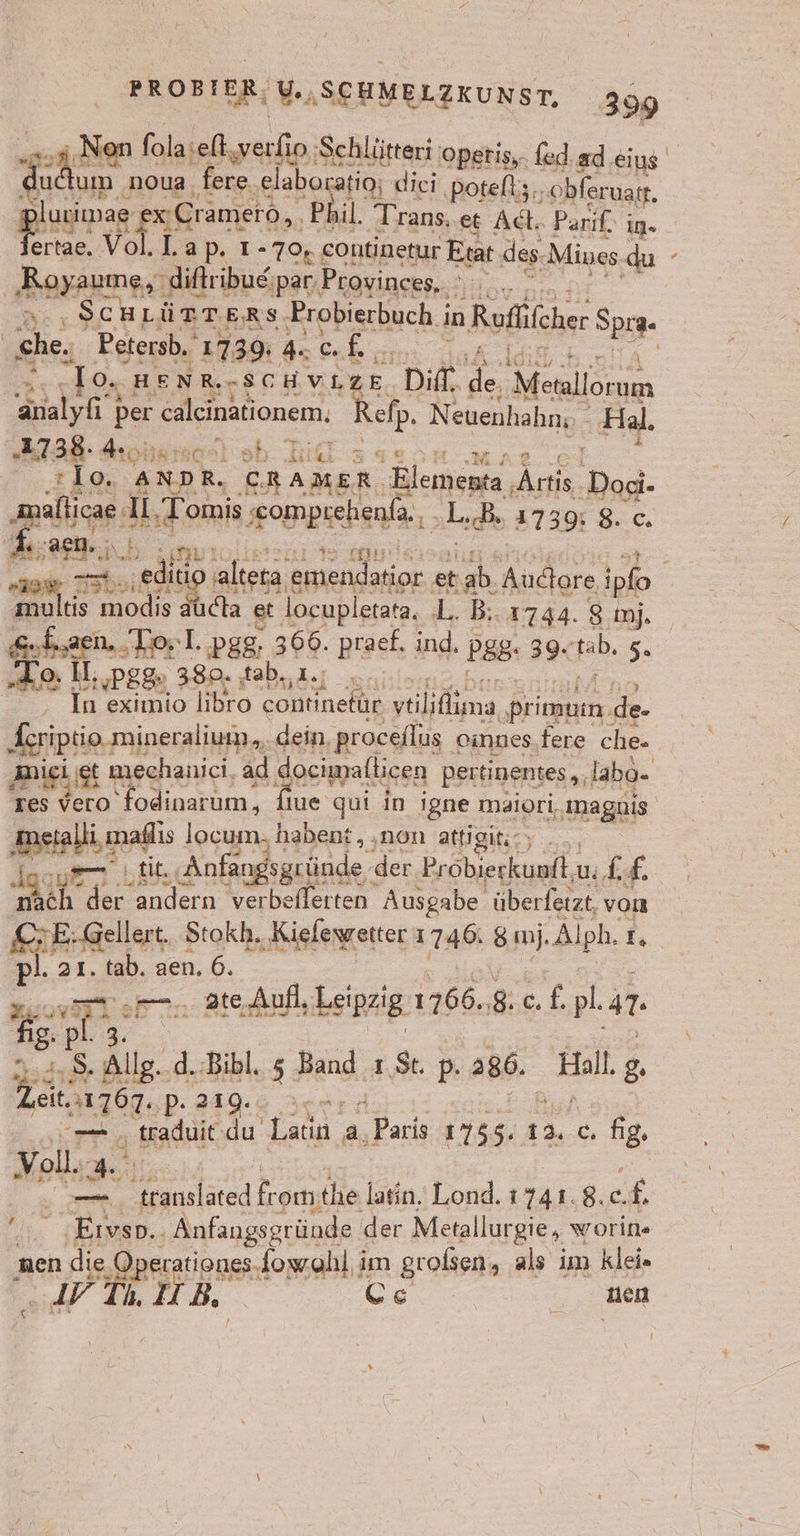 PROBIER. U. SCHMELZKUNST, 399
Non ſola eſt verſio Schlütteri operis, ſed ad eius
ductum noua fere elaboratio; dici poteſt; obſeruatt.
plurimae ex Cramero, Phil. Trans. et Act. Pariſ. in-
ſertae. Vol. I. a p. 1-70, continetur Etat des Mines du
Royaume, diſtribué par Provinces.
SCHLÜTTERS Probierbuch in Ruſſiſcher Spra-
che. Petersb. 1739. 4. c. f.
IO. HENR. SCHVLZE Diſſ. de Metallorum
analyſi per calcinationem. Reſp. Neuenhahn. Hal.
1738. 4.
IO. ANDR. CRAMER Elementa Artis Doci-
maſticae II. Tomis comprehenſa. L. B. 1739. 8. c.
f. aen.
— editio altera emendatior et ab Auctore ipſo
multis modis aucta et locupletata. L. B. 1744. 8 mj.
c. f. aen. To. I. pgg. 366. praef. ind. pgg. 39. tab. 5.
To. II. pgg. 380. tab. 1.
In eximio libro continetur vtiliſſima primum de-
ſcriptio mineralium, dein proceſſus omnes fere che-
mici et mechanici, ad docimaſticen pertinentes, labo-
res vero fodinarum, ſiue qui in igne maiori magnis
metalli maſſis locum habent, non attigit.
— tit. Anfangsgründe der Probierkunſt u. ſ. f.
nach der andern verbeſſerten Ausgabe überſetzt von
C. E. Gellert. Stokh. Kieſewetter 1746. 8 mj. Alph. 1.
pl. 21. tab. aen. 6.
— — 2te Aufl. Leipzig 1766. 8. c. f. pl. 47.
fig. pl. 3.
S. Allg. d. Bibl. 5 Band 1 St. p. 286. Hall. g.
Zeit. 1767. p. 219.
— traduit du Latin a Paris 1755. 12. c. fig.
Voll. 4.
— translated from the latin. Lond. 1741. 8. c. f.
EIVSD. Anfangsgründe der Metallurgie, worin-
nen die Operationes ſowohl im groſsen, als im klei-
IV Th. II B. Cc nen